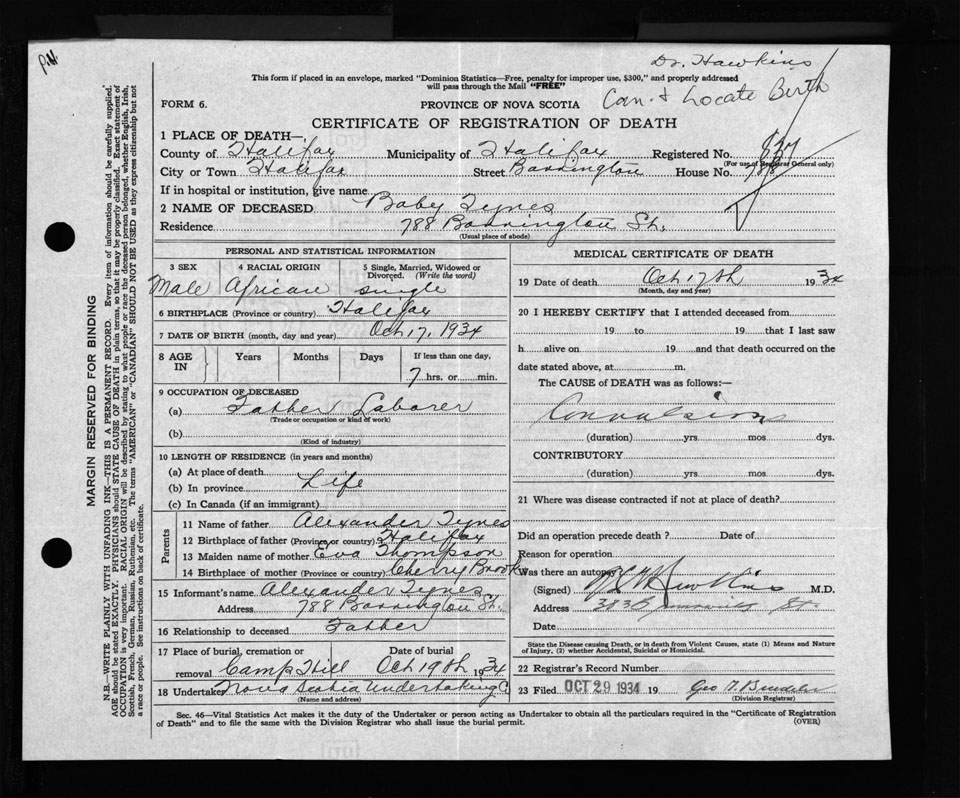 P.H.
Dr. Hawkins
This form if placed in an envelope, marked "Dominion Statistics—Free, penalty for improper use, $300," and properly addressed
will pass through the Mail "FREE"
Can't Locate Birth
FORM 6.
PROVINCE OF NOVA SCOTIA
CERTIFICATE OF REGISTRATION OF DEATH
1 PLACE OF DEATH—
County of Halifax Municipality of Halifax Registered No. 837
(For use of Registrar General only)
City or Town Halifax Street Barrington House No. 788
If in hospital or institution, give name
2 NAME OF DECEASED Baby Tynes
Residence 788 Barrington St.
(Usual place of abode)
PERSONAL AND STATISTICAL INFORMATION
3 SEX 4 RACIAL ORIGIN 5 Single, Married, Widowed or
Divorced. (Write the word)
Male African single
6 BIRTHPLACE (Province or country) Halifax
7 DATE OF BIRTH (month, day and year) Oct 17, 1934
8 AGE IN Years Months Days If less than one day,
7 hrs. or min.
9 OCCUPATION OF DECEASED
(a) Father Laborer
(Trade or occupation or kind of work)
(b)
(Kind of industry)
10 LENGTH OF RESIDENCE (in years and months)
(a) At place of death
(b) In province Life
(c) In Canada (if an immigrant)
Parents
11 Name of father Alexander Tynes
12 Birthplace of father (Province or country) Halifax
13 Maiden name of mother Eva Thompson
14 Birthplace of mother (Province or country) Cherry Brook
15 Informant's name Alexander Tynes
Address 788 Barrington St.
16 Relationship to deceased Father
17 Place of burial, cremation or Date of burial
removal Camp Hill Oct 19th, 34
18 Undertaker Nova Scotia Undertaking C
(Name and address)
MEDICAL CERTIFICATE OF DEATH
19 Date of death Oct 17th 1934
(Month, day and year)
20 I HEREBY CERTIFY that I attended deceased from
19 to 19 that I last saw
h alive on 19 and that death occurred on the
date stated above, at m.
The CAUSE of DEATH was as follows:—
Convulsions
(duration) yrs mos dys.
CONTRIBUTORY
(duration) yrs. mos. dys.
21 Where was disease contracted if not at place of death?
Did an operation precede death? Date of
Reason for operation
Was there an autopsy
(Signed) Hawkins M.D.
Address St.
Date
State the Disease causing Death, or in death from Violent Causes, state (1) Means and Nature
of Injury, (2) whether Accidental, Suicidal or Homicidal.
22 Registrar's Record Number
23 Filed OCT 29 1934 19 Geo
(Division Registrar)
Sec. 46—Vital Statistics Act makes it the duty of the Undertaker or person acting as Undertaker to obtain all the particulars required in the "Certificate of Registration
of Death" and to file the same with the Division Registrar who shall issue the burial permit. (OVER)
MARGIN RESERVED FOR BINDING
N.B.—WRITE PLAINLY WITH UNFADING INK—THIS IS A PERMANENT RECORD. Every item of information should be carefully supplied.
AGE should be stated EXACTLY. PHYSICIANS should STATE CAUSE OF DEATH in plain terms, so that it may be properly classified. Exact statement of
OCCUPATION is very important. RACIAL ORIGIN will be described by stating to what people or race the deceased person belonged, whether English, Irish,
Scottish, French, German, Russian, Ruthenian, etc. The terms "AMERICAN" or "CANADIAN" SHOULD NOT BE USED as they express citizenship but not
a race or people. See instructions on back of certificate.